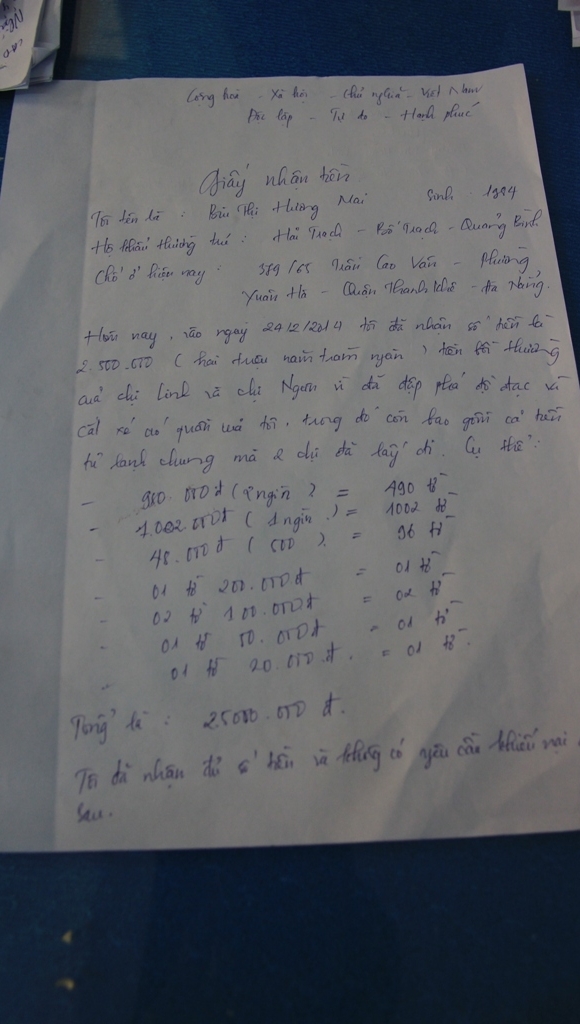 Cộng hoà - Xã hội - Chủ nghĩa - Việt Nam
Độc lập - Tự do - Hạnh phúc
Giấy nhận tiền
Tôi tên là : Bùi Thị Hương Mai Sinh : 1994
Hộ khẩu thường trú : Hải Trạch - Bố Trạch - Quảng Bình
Chỗ ở hiện nay : 389/65 Trần Cao Vân - Phường
Xuân Hà - Quận Thanh Khê - Đà Nẵng.
Hôm nay, vào ngày 24/2/2014 tôi đã nhận số tiền là
2.500.000 ( hai triệu năm trăm ngàn ) tiền bồi thường
của chị Linh và chị Ngon vì đã đập phá đồ đạc và
cắt số áo quần của tôi, trong đó còn bao gồm cả tiền
tủ lạnh chung mà 2 chị đã lấy đi. Cụ thể :
- 980.000đ ( 2 ngìn ) = 490 tờ
- 1.002.000đ ( 1 ngìn ) = 1002 tờ
- 48.000đ ( 500 ) = 96 tờ
- 01 tờ 200.000đ = 01 tờ
- 02 tờ 100.000đ = 02 tờ
- 01 tờ 50.000đ = 01 tờ
- 01 tờ 20.000đ. = 01 tờ.
Tổng là : 25000.000 đ.
Tôi đã nhận đủ số tiền và không có yêu cầu khiếu nại
sau.